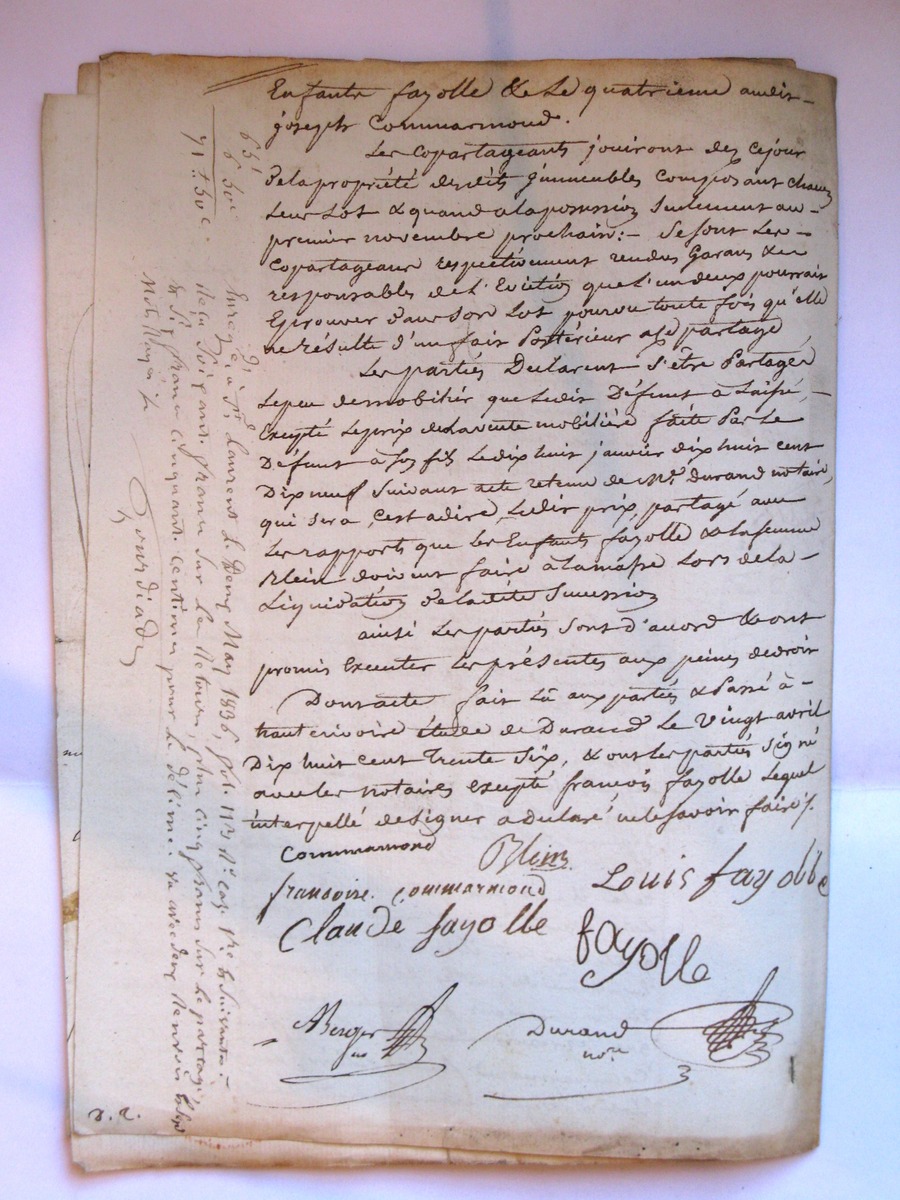 Enfants fayolle & le quatrieme audit
joseph Commarmond.
Les Copartageants jouiront des cejour
dela propriété desdits jmmeubles Composant chacun
leur Lot & quand alapossession Seulement au
premier novembre prochain: Se sont Les
Copartageans respectivement rendus Garans &
responsables de L'Eviction que L'un deux pourrait
Eprouver dans son Lot pourvu toute fois qu'elle
ne résulte d'un fait Postérieur au partage
Les parties Déclarent s'être Partagé
Lepeu demobilier que Ledit Défunt à Laissé,
Excepté Leprix delavente mobilière faite Par Le
Défunt à son fils Ledix huit janvier dix huit cent
Dix neuf Suivant acte retenu de Me. Durand notaire,
qui sera, c'est adire, Ledit prix, partagé avec
Les rapports que les Enfants fayolle & lafemme
doivent faire àlamasse Lors dela
Liquidation deladite Succession
ainsi Les parties sont d'accord & ont
promis Executer Les présentes aux peines dedroit
Dont acte fait Lû aux parties & Passé à
haut étude de Durand Le Vingt avril
Dix huit cent trente Six, & ont Les parties Signé
avec les notaires excepté francois fayolle Lequel
interpellé designer a déclaré nele savoir faire /.
Commarmond
francoise. Commarmond
Louis fayolle
Claude fayolle
fayolle
Berger
Durand
nore
65f
6 50c
71f. 50c.
Enregé. à St. Laurent le Deux May 1836, fol. 113
Reçu francs sur le Retour, plus cinq francs sur le partage,
& Six francs cinquante centimes pour le décime.
Gourdiade